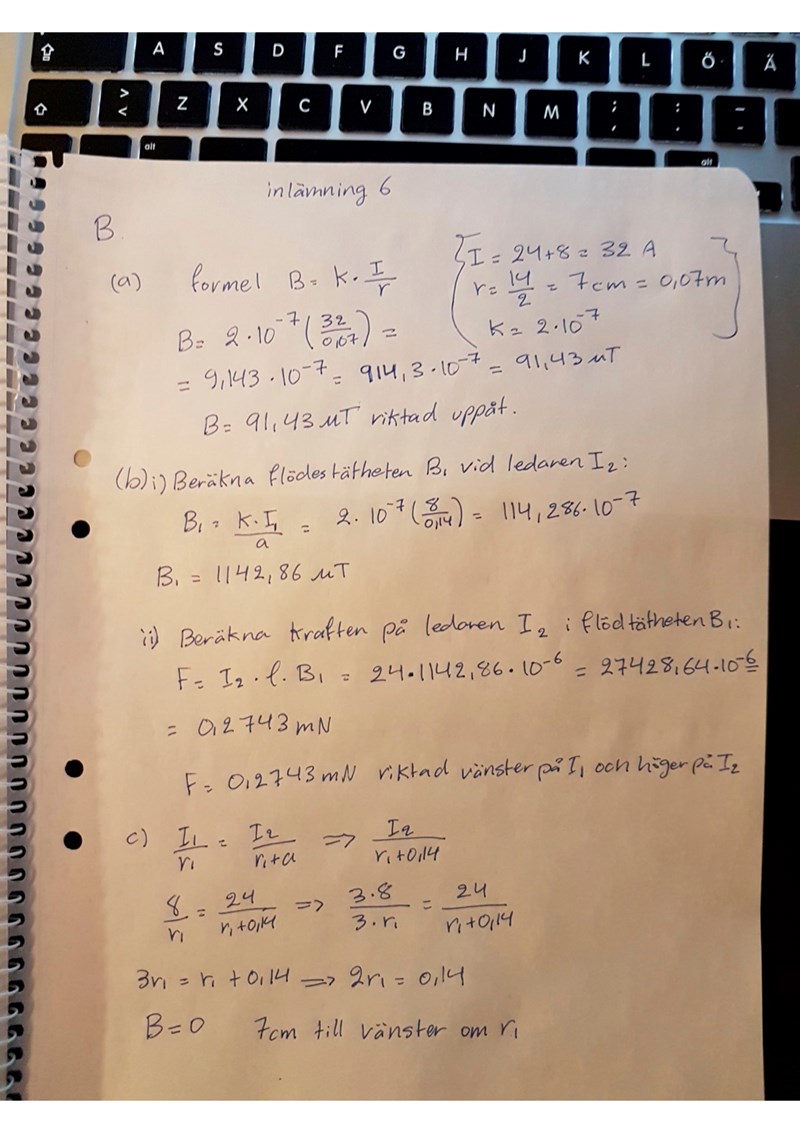 A S D F G H J K L Ö Ä
> < Z X C V B N M ; , : . _ -
alt alt
inlämning 6
B
(a) formel B = K · I/r
{ I = 24+8 = 32 A
r = 14/2 = 7cm = 0,07m
K = 2·10⁻⁷ }
B = 2·10⁻⁷ (32/0,07) =
= 9,143·10⁻⁷ = 914,3·10⁻⁷ = 91,43 μT
B = 91,43 μT riktad uppåt.
(b) i) Beräkna flödestätheten B₁ vid ledaren I₂:
B₁ = K·I₁/a = 2·10⁻⁷ (8/0,14) = 114,286·10⁻⁷
B₁ = 1142,86 μT
ii) Beräkna kraften på ledaren I₂ i flödtätheten B₁:
F = I₂·l·B₁ = 24·1142,86·10⁻⁶ = 27428,64·10⁻⁶ =
= 0,2743 mN
F = 0,2743 mN riktad vänster på I₁ och höger på I₂
c) I₁/r₁ = I₂/r₁+a => I₂/r₁+0,14
8/r₁ = 24/r₁+0,14 => 3·8/3·r₁ = 24/r₁+0,14
3r₁ = r₁ + 0,14 => 2r₁ = 0,14
B = 0 7cm till vänster om r₁